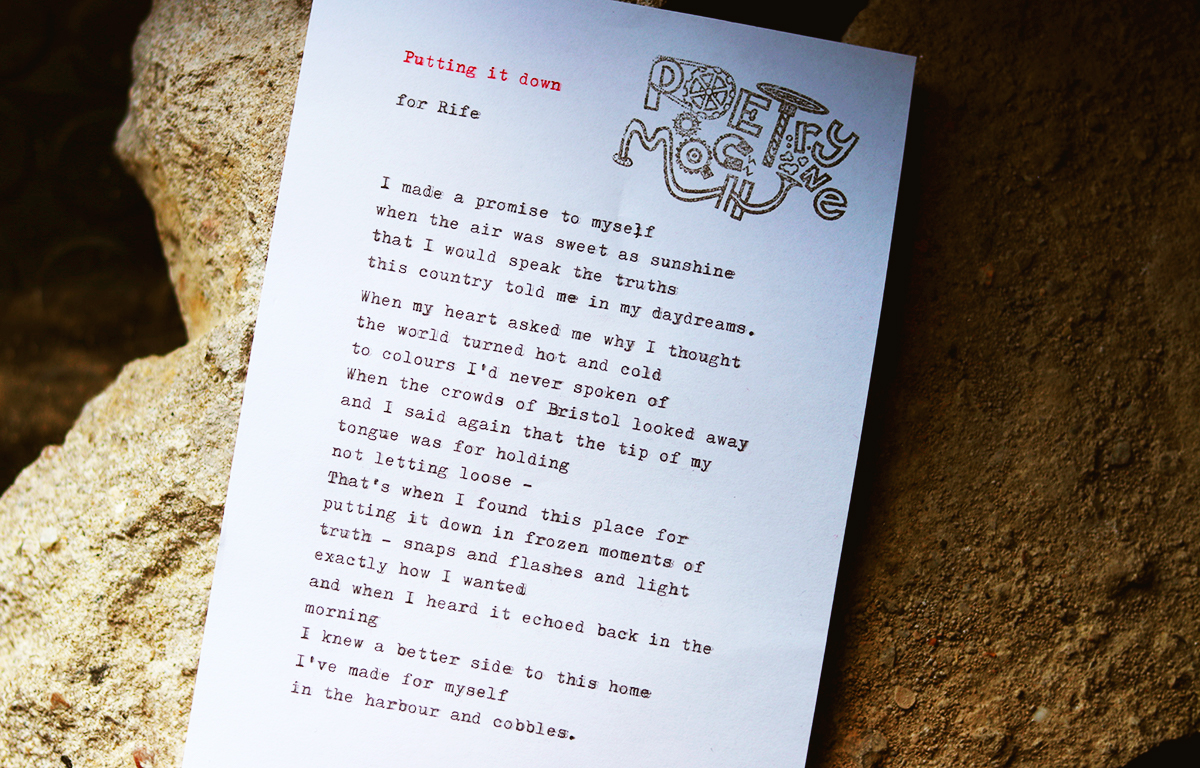 Putting it down
POETRY
MACHINE
for Rife
I made a promise to myself
when the air was sweet as sunshine
that I would speak the truths
this country told me in my daydreams.
When my heart asked me why I thought
the world turned hot and cold
to colours I'd never spoken of
When the crowds of Bristol looked away
and I said again that the tip of my
tongue was for holding
not letting loose -
That's when I found this place for
putting it down in frozen moments of
truth - snaps and flashes and light
exactly how I wanted
and when I heard it echoed back in the
morning
I knew a better side to this home
I've made for myself
in the harbour and cobbles.